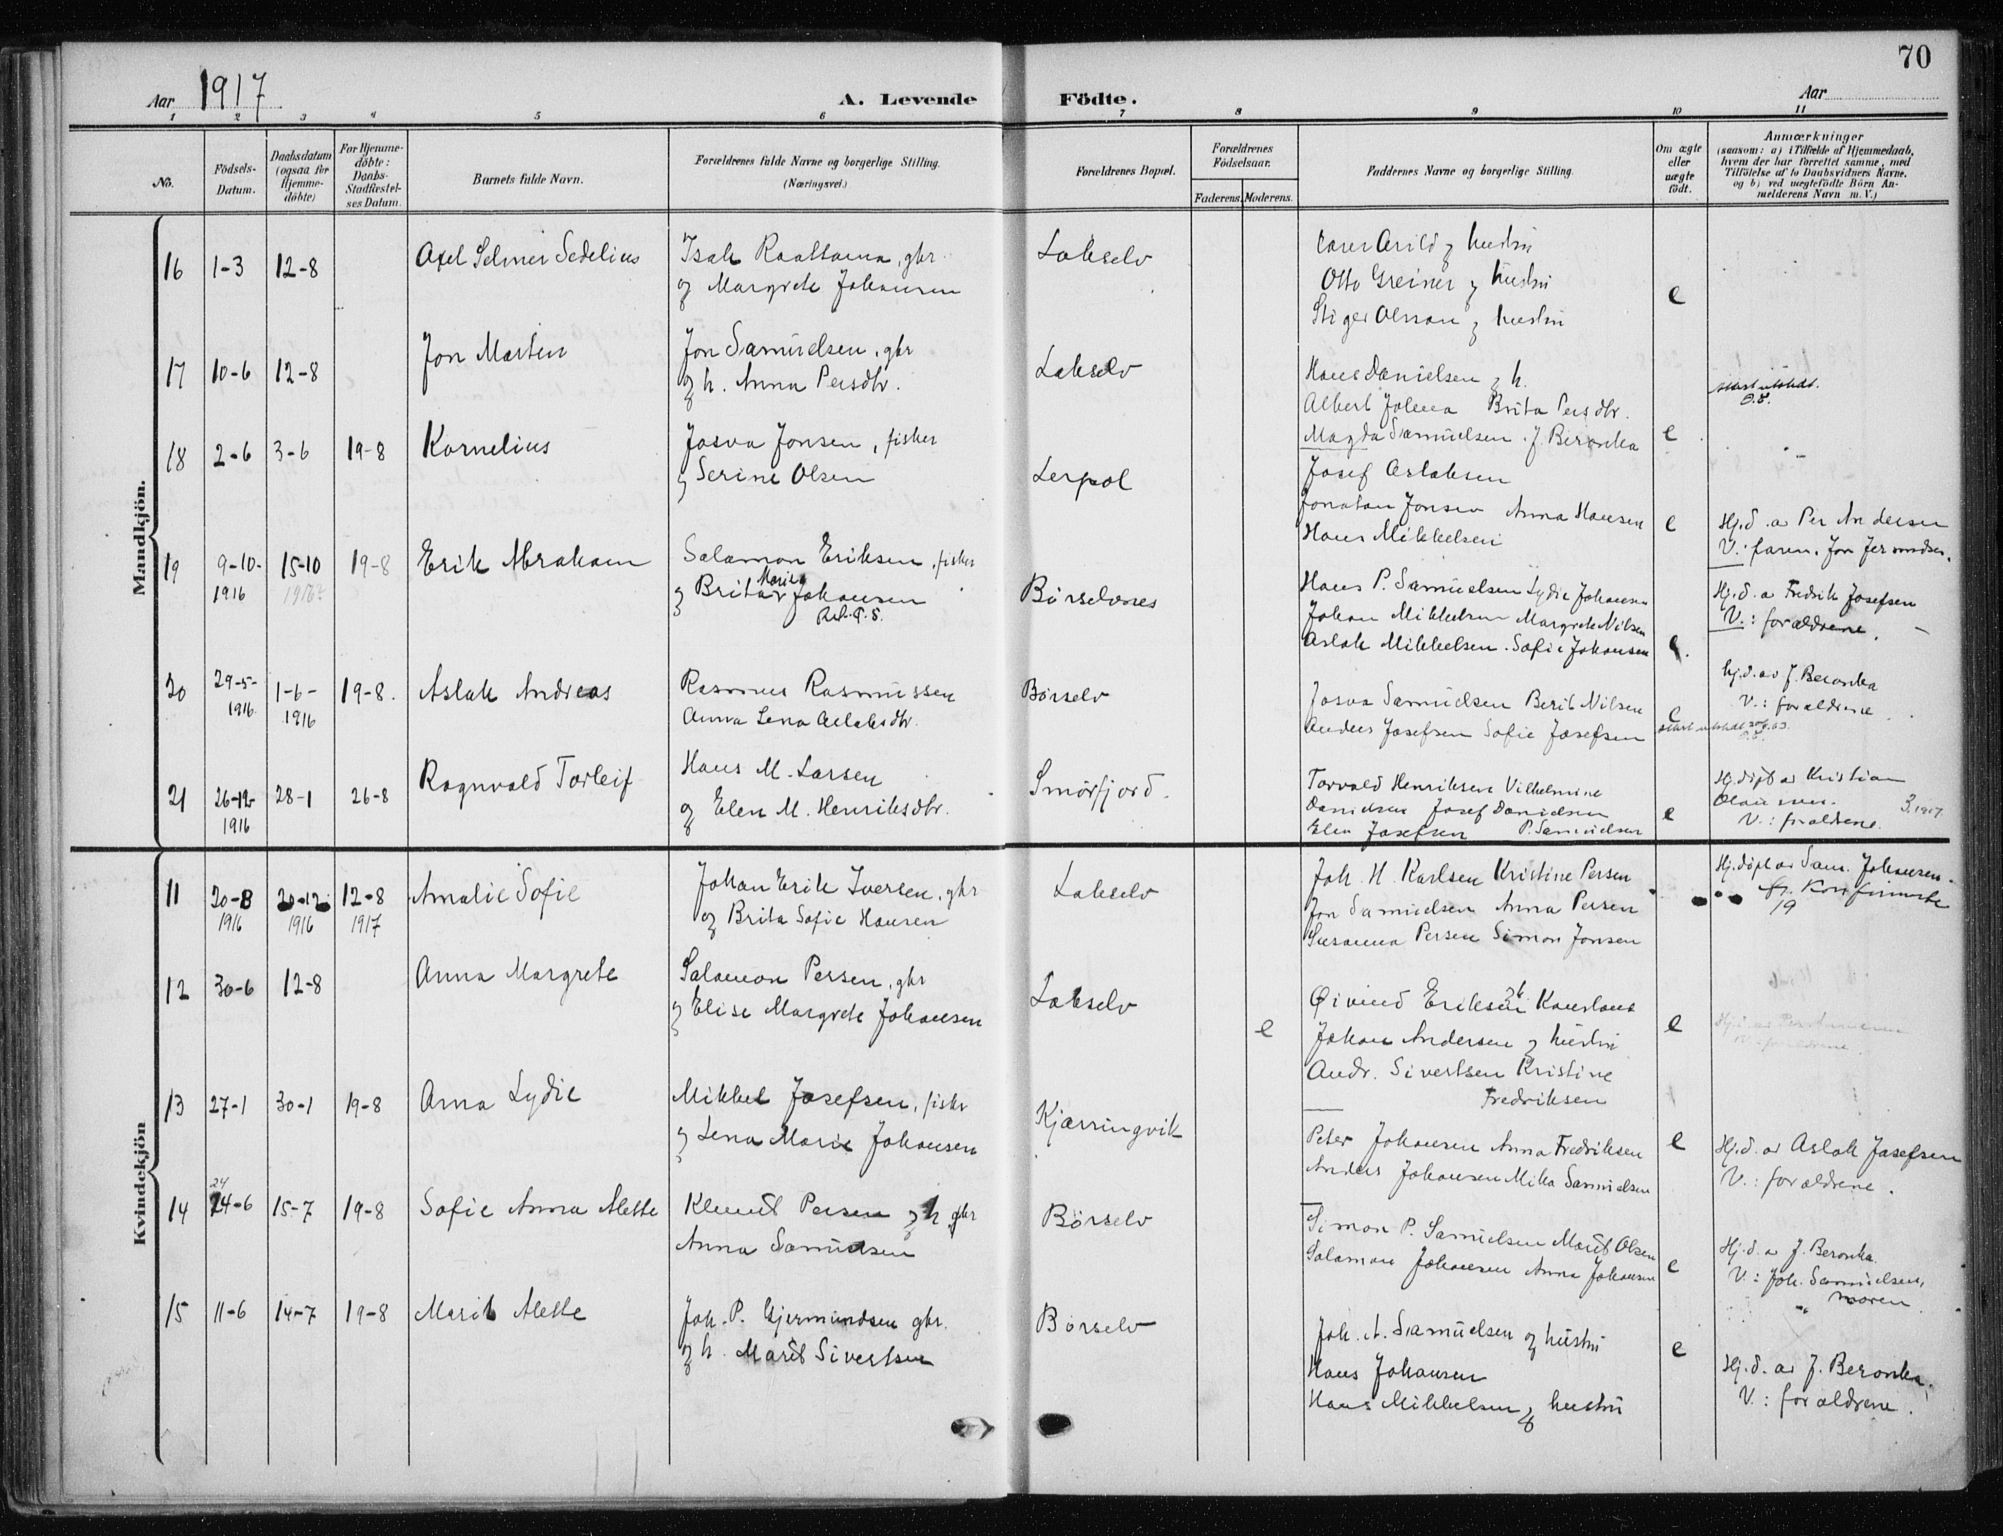 70
Aar 1917
A. Levende Födte.
Aar
1 2 3 4 5 6 7 8 9 10 11
No.
Födsels-Datum.
Daabsdatum (ogsaa for Hjemme-döbte)
For Hjemme-döbte: Daabs-Stadfæstel-ses Datum.
Barnets fulde Navn.
Forældrenes fulde Navne og borgerlige Stilling.
(Næringsvei.)
Forældrenes Bopæl.
Forældrenes Födselsaar.
Faderens. Moderens.
Faddernes Navne og borgerlige Stilling.
Om ægte eller uægte födt.
Anmærkninger
(saasom: a) i Tilfælde af Hjemmedaab,
hvem der har forrettet samme, med
Tilföielse af to Daabsvidners Navne,
og b) ved uægtefödte Börn An-
melderens Navn m. V.)
Mandkjön.
16 1-3 12-8 Axel Selmer Sedelius
Isak Raattama, gbr
og Margrete Johansen
Lakselv
Arild og hustru
Otto Greiner og hustru
Stiger Olsson og hustru
e
17 10-6 12-8 Jon Marten
Jon Samuelsen, gbr
og h. Anna Persdtr.
Lakselv
Hans Danielsen og h.
Albert Johna Brita Persdtr.
Magda Samuelsen. J. Beronka
e
attest utstedt.
18 2-6 3-6 19-8 Kornelius
Josva Jonsen, fisker
og Serine Olsen
Lerpol
Josef Aslaksen
Jonatan Jonsen Anna Hansen
Hans Mikkelsen
e
Hj.d. av Per Andersen
V.: faren, Jon
19 9-10-1916 15-10 19-8 Erik Abraham
Salamon Eriksen, fisker
og Brita Maria Johansen
Børselvnes
Hans P. Samuelsen Lydie Johansen
Johan Mikkelsen Margrete Nilsen
Aslak Mikkelsen. Sofie Johansen
e.
Hj.d. a Fredrik Josefsen
V.: forældrene.
20 29-5-1916 1-6-1916 19-8. Aslak Andreas
Rasmus Rasmussen
Anna Lena Aslaksdtr.
Børselv
Josva Samuelsen Berit Nilsen
Anders Josefsen Sofie Josefsen
e
hj.d. av J. Beronka
V.: forældrene
attest utstedt
21 26-12-1916 28-1 26-8 Ragnvald Torleif
Hans M. Larsen
og Elen M. Henriksdtr.
Smørfjord.
Torvald Henriksen Vilhelmine
Danielsen Josef Danielsen
Elen Josefsen P. Samuelsen
e
Hj.døpt av Kristian
Olaussen.
V.: forældrene.
3.1917
Kvindekjön
11 20-8 1916 20-12 1916 12-8 1917 Amalie Sofie
Johan Erik Iversen, gbr
og Brita Sofie Hansen
Lakselv
Joh. H. Karlsen Kristine Persen
Jon Samuelsen Anna Persen
Susanna Persen Simon Jonsen
Hj.døpt av Sam. Johansen.
19
12 30-6 12-8 Anna Margrete
Salamon Persen, gbr
og Elise Margrete Johansen
Lakselv
e
Øivind Eriksen
Johan Andersen og hustru
Andr. Sivertsen Kristine
Fredriksen
e
13 27-1 30-1 19-8 Anna Lydie
Mikkel Josefsen, fisker
og Lena Marie Johansen
Kjærringvik
Peter Johansen Anna Fredriksen
Anders Johansen Mika Samuelsen
e
Hj.d. av Aslak Josefsen
V.: forældrene.
14 24 24-6 15-7 19-8 Sofie Anna Alette
Klemet Persen og h gbr
Anna Samuelsen
Børselv
Simon P. Samuelsen Marit Olsen
Salamon Johansen Anna Johansen
e
Hj.d. a J. Beronka
V.: Joh. Samuelsen,
moren
15 11-6 14-7 19-8 Marit Alette
Joh. P. Gjermundsen gbr.
og h. Marit Sivertsen
Børselv
Joh. A. Samuelsen og hustru
Hans Johansen
Hans Mikkelsen og hustru
e
Hj.d. av J. Beronka.
V.: forældrene.